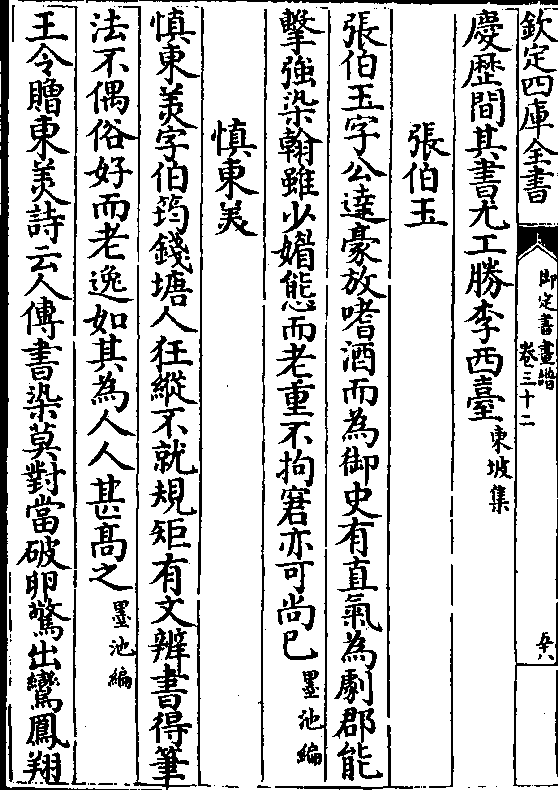 欽定四庫全書
御定書畫譜
卷三十二
慶歷間其書尤工勝李西臺東坡集
張伯玉
張伯玉字公達豪放嗜酒而為御史有直氣為劇郡能
擊強染翰雖少媚態而老重不拘窘亦可尚已墨池編
慎東美
慎東美字伯筠錢塘人狂縱不就規矩有文辨書得筆
法不偶俗好而老逸如其為人人甚高之墨池編
王令贈東美詩云人傳書染莫對當破卵驚出鸞鳳翔